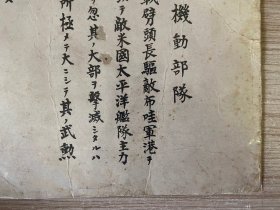 機動部隊
戰劈頭長驅敵布哇軍港ヲ
テ敵米國太平洋艦隊主力
忽其ノ大部ヲ擊滅シタルハ
所極メテ大ニシテ其ノ武勲